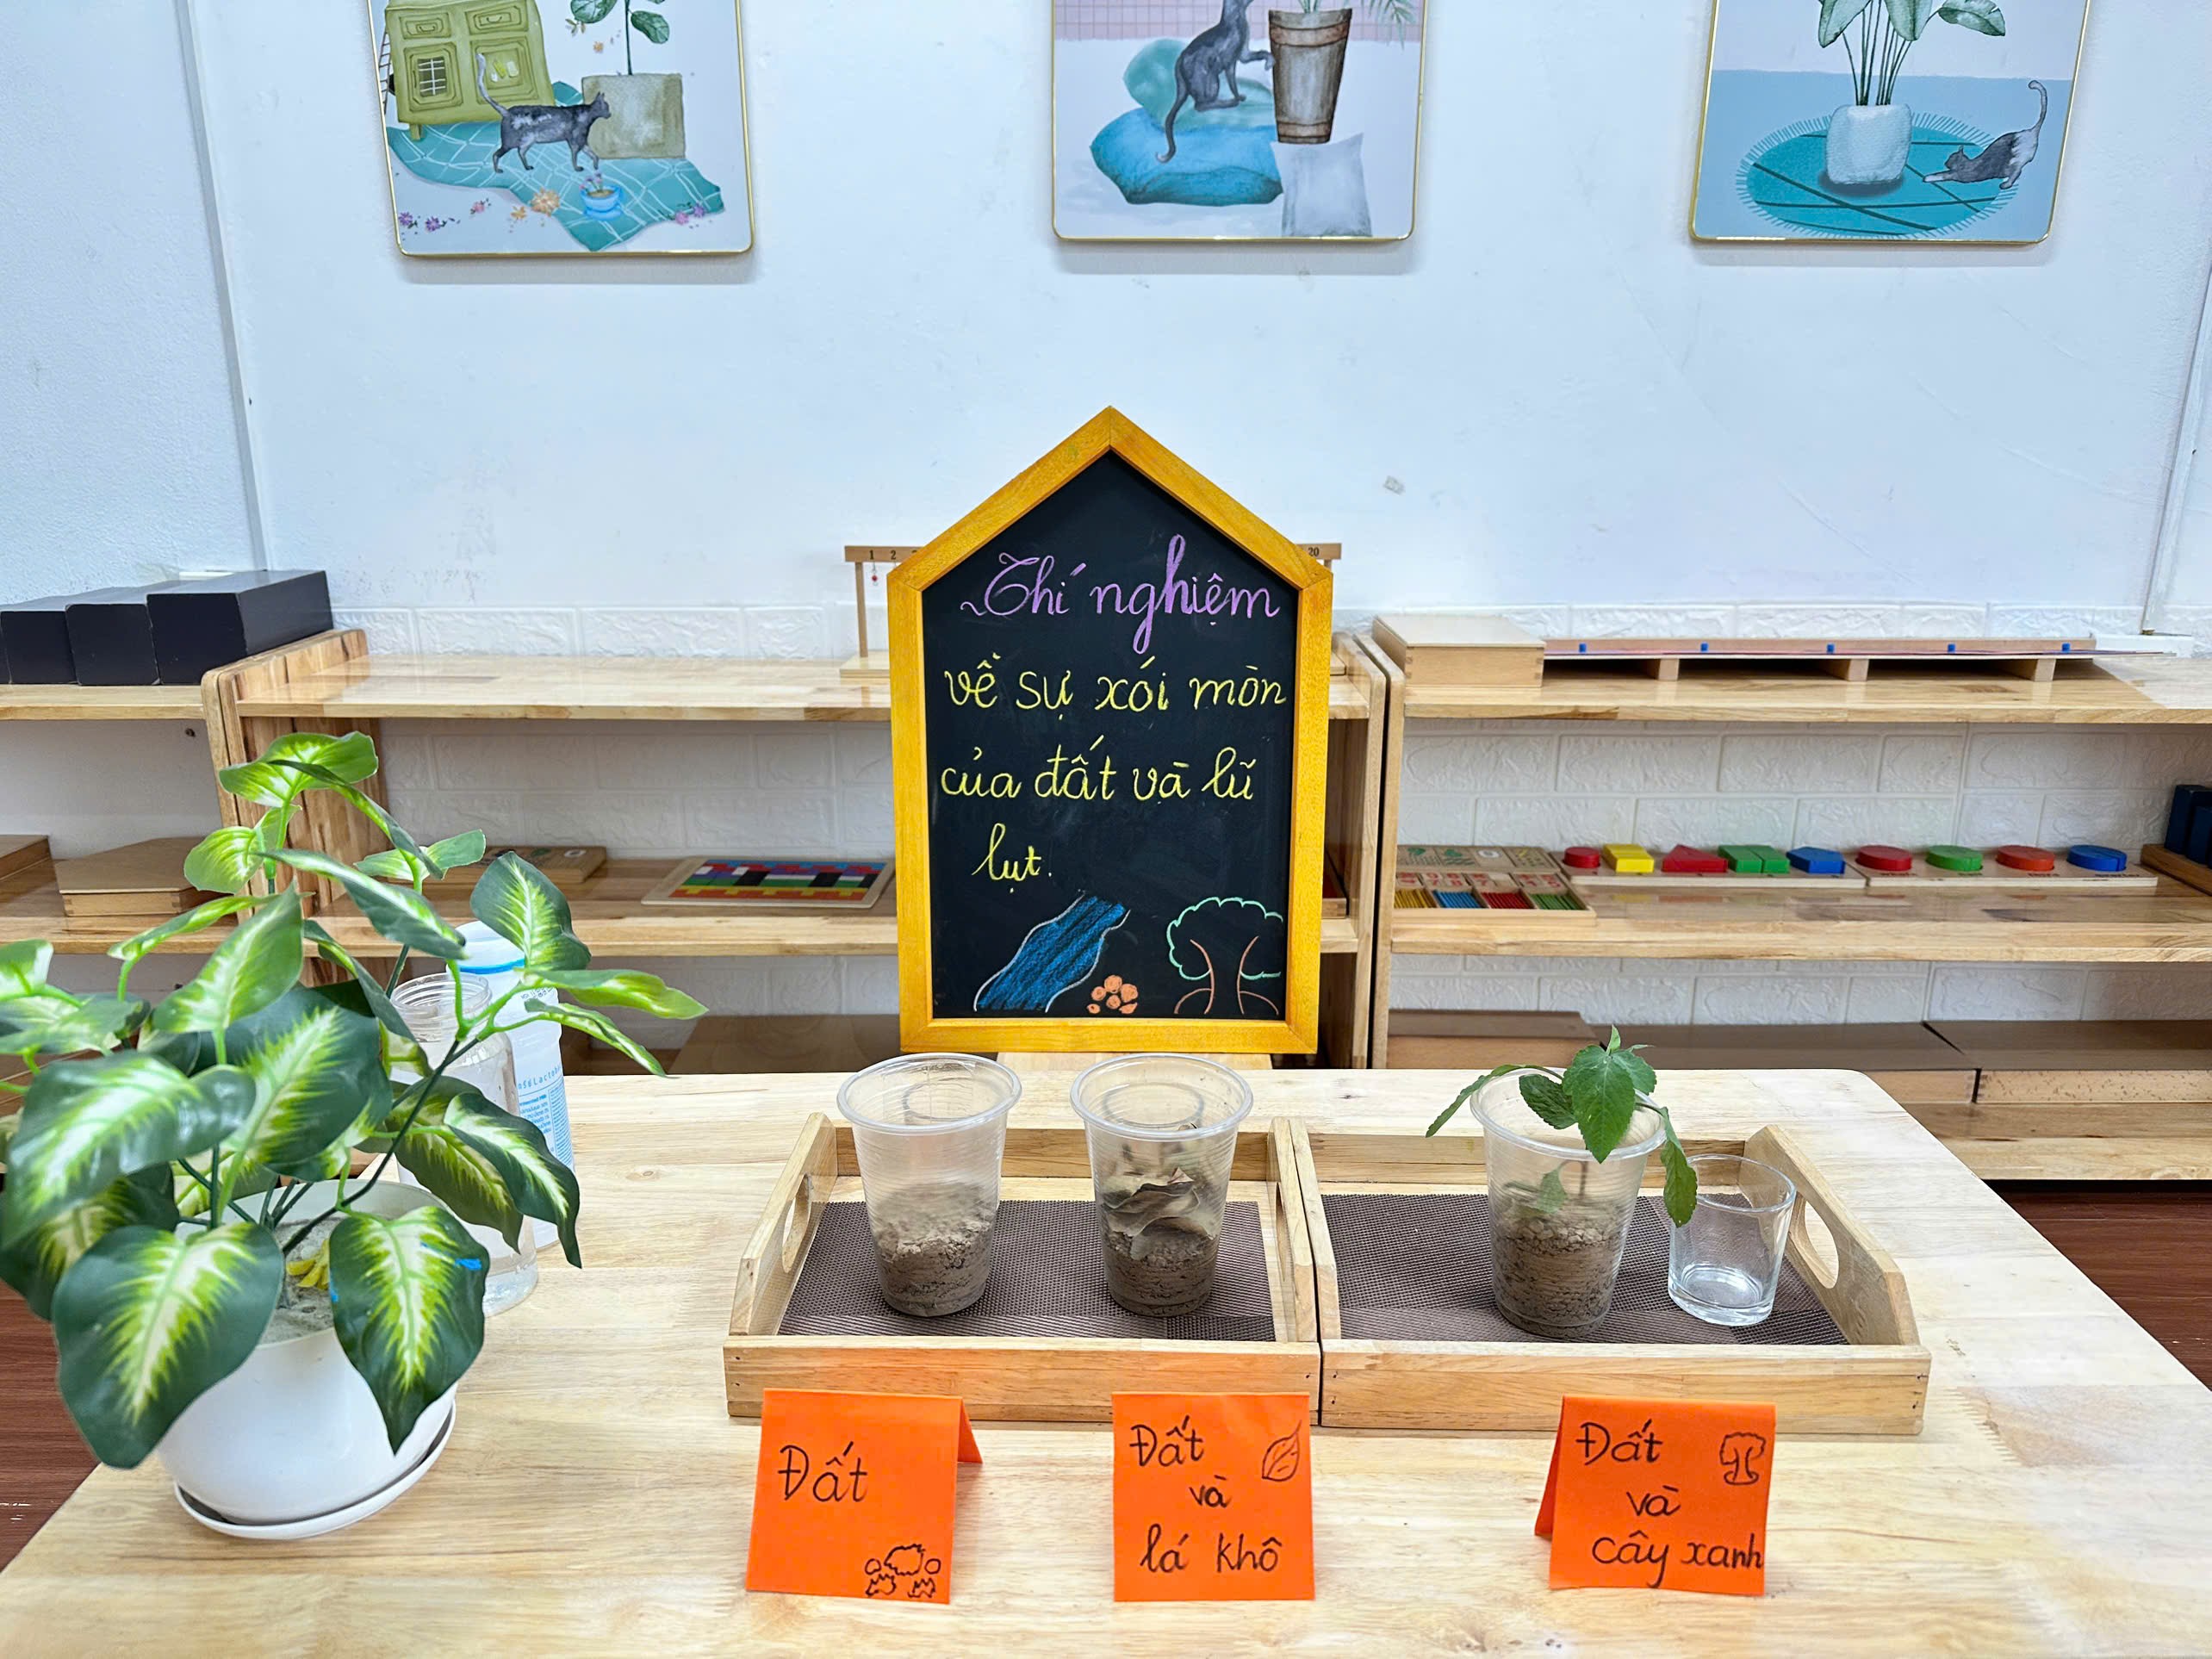 1 2
20
Thí nghiệm
về sự xói mòn
của đất và lũ
lụt.
Đất
Đất
và
lá khô
Đất
và
cây xanh